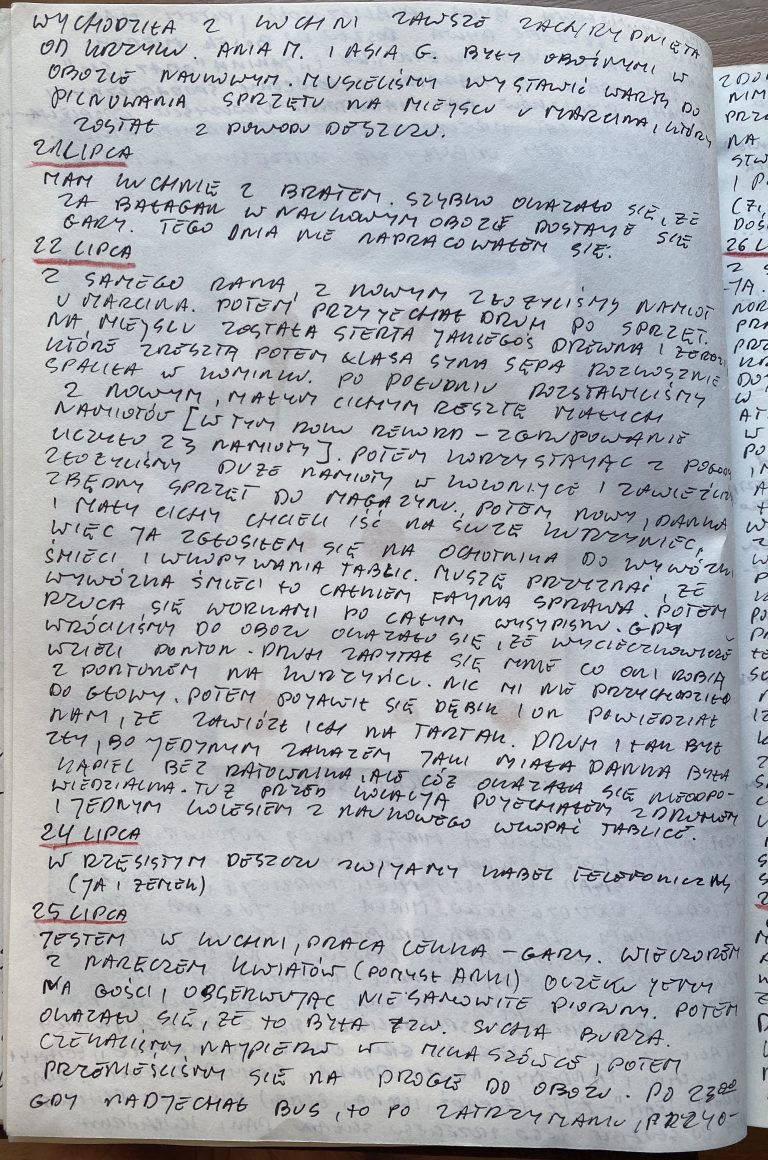 WYCHODZIŁA Z KUCHNI ZAWSZE ZACHRYPNIĘTA
OD KRZYKU. ANIA M. I ASIA G. BYŁY OBOŹNYMI W
OBOZIE NAUKOWYM. MUSIELIŚMY WYSTAWIĆ WARTĘ DO
PILNOWANIA SPRZĘTU NA MIEJSCU U MARCINA, KTÓRY
ZOSTAŁ Z POWODU DESZCZU.
21 LIPCA
MAM KUCHNIĘ Z BRATEM. SZYBKO OKAZAŁO SIĘ, ŻE
ZA BAŁAGAN W NAUKOWYM OBOZIE DOSTAJE SIĘ
GARY. TEGO DNIA NIE NAPRACOWAŁEM SIĘ.
22 LIPCA
Z SAMEGO RANA, Z NOWYM ZŁOŻYLIŚMY NAMIOT
U MARCINA. POTEM PRZYJECHAŁ DRUH PO SPRZĘT.
NA MIEJSCU ZOSTAŁA STERTA JAKIEGOŚ DREWNA I ŻERDZI
KTÓRE ZRESZTĄ POTEM KLASA SYNA SĘPA ROZKOSZNIE
SPALIŁA W KOMINKU. PO POŁUDNIU ROZSTAWILIŚMY
Z NOWYM, MAŁYM CICHYM RESZTĘ MAŁYCH
NAMIOTÓW [W TYM ROKU REKORD - ZGRUPOWANIE
LICZYŁO 23 NAMIOTY]. POTEM KORZYSTAJĄC Z POGODY
ZŁOŻYLIŚMY DUŻE NAMIOTY W KOLONIJCE I ZAWIEŹLIŚMY
ZBĘDNY SPRZĘT DO MAGAZYNU. POTEM NOWY, DANKA
I MAŁY CICHY CHCIELI IŚĆ NA ŚLUZĘ KURZYNIEC,
WIĘC JA ZGŁOSIŁEM SIĘ NA OCHOTNIKA DO WYWÓZKI
ŚMIECI I WKOPYWANIA TABLIC. MUSZĘ PRZYZNAĆ, ŻE
WYWÓZKA ŚMIECI TO CAŁKIEM FAJNA SPRAWA. POTEM
RZUCA SIĘ WORKAMI PO CAŁYM WYSYPISKU. GDY
WRÓCILIŚMY DO OBOZU OKAZAŁO SIĘ, ŻE WYCIECZKOWICZE
WZIELI PONTON. DRUH ZAPYTAŁ SIĘ MNIE CO ONI ROBIĄ
Z PONTONEM NA KURZYŃCU. NIC MI NIE PRZYCHODZIŁO
DO GŁOWY. POTEM POJAWIŁ SIĘ DĘBIK I ON POWIEDZIAŁ
NAM, ŻE ZAWIÓZŁ ICH NA TARTAK. DRUH I TAK BYŁ
ZŁY, BO JEDYNYM ZAKAZEM JAKI MIAŁA DANKA BYŁA
KĄPIEL BEZ RATOWNIKA, ALE CÓŻ OKAZAŁA SIĘ NIEODPO-
WIEDZIALNA. TUŻ PRZED KOLACJĄ POJECHAŁEM Z DRUHEM
I JEDNYM KOLESIEM Z NAUKOWEGO WKOPAĆ TABLICE.
24 LIPCA
W RZĘSISTYM DESZCZU ZWIJAMY KABEL TELEFONICZNY
(JA I ZENEK)
25 LIPCA
JESTEM W KUCHNI, PRACA LEKKA - GARY. WIECZOREM
Z NARĘCZEM KWIATÓW (POMYSŁ ANKI) OCZEKUJEMY
NA GOŚCI, OBSERWUJĄC NIESAMOWITE PIORUNY. POTEM
OKAZAŁO SIĘ, ŻE TO BYŁA TZW. SUCHA BURZA.
CZEKALIŚMY NAJPIERW W MIKASZÓWCE, POTEM
PRZENIEŚLIŚMY SIĘ NA DROGĘ DO OBOZU. PO 23⁰⁰
GDY NADJECHAŁ BUS, TO PO ZATRZYMANIU, PRZYO-